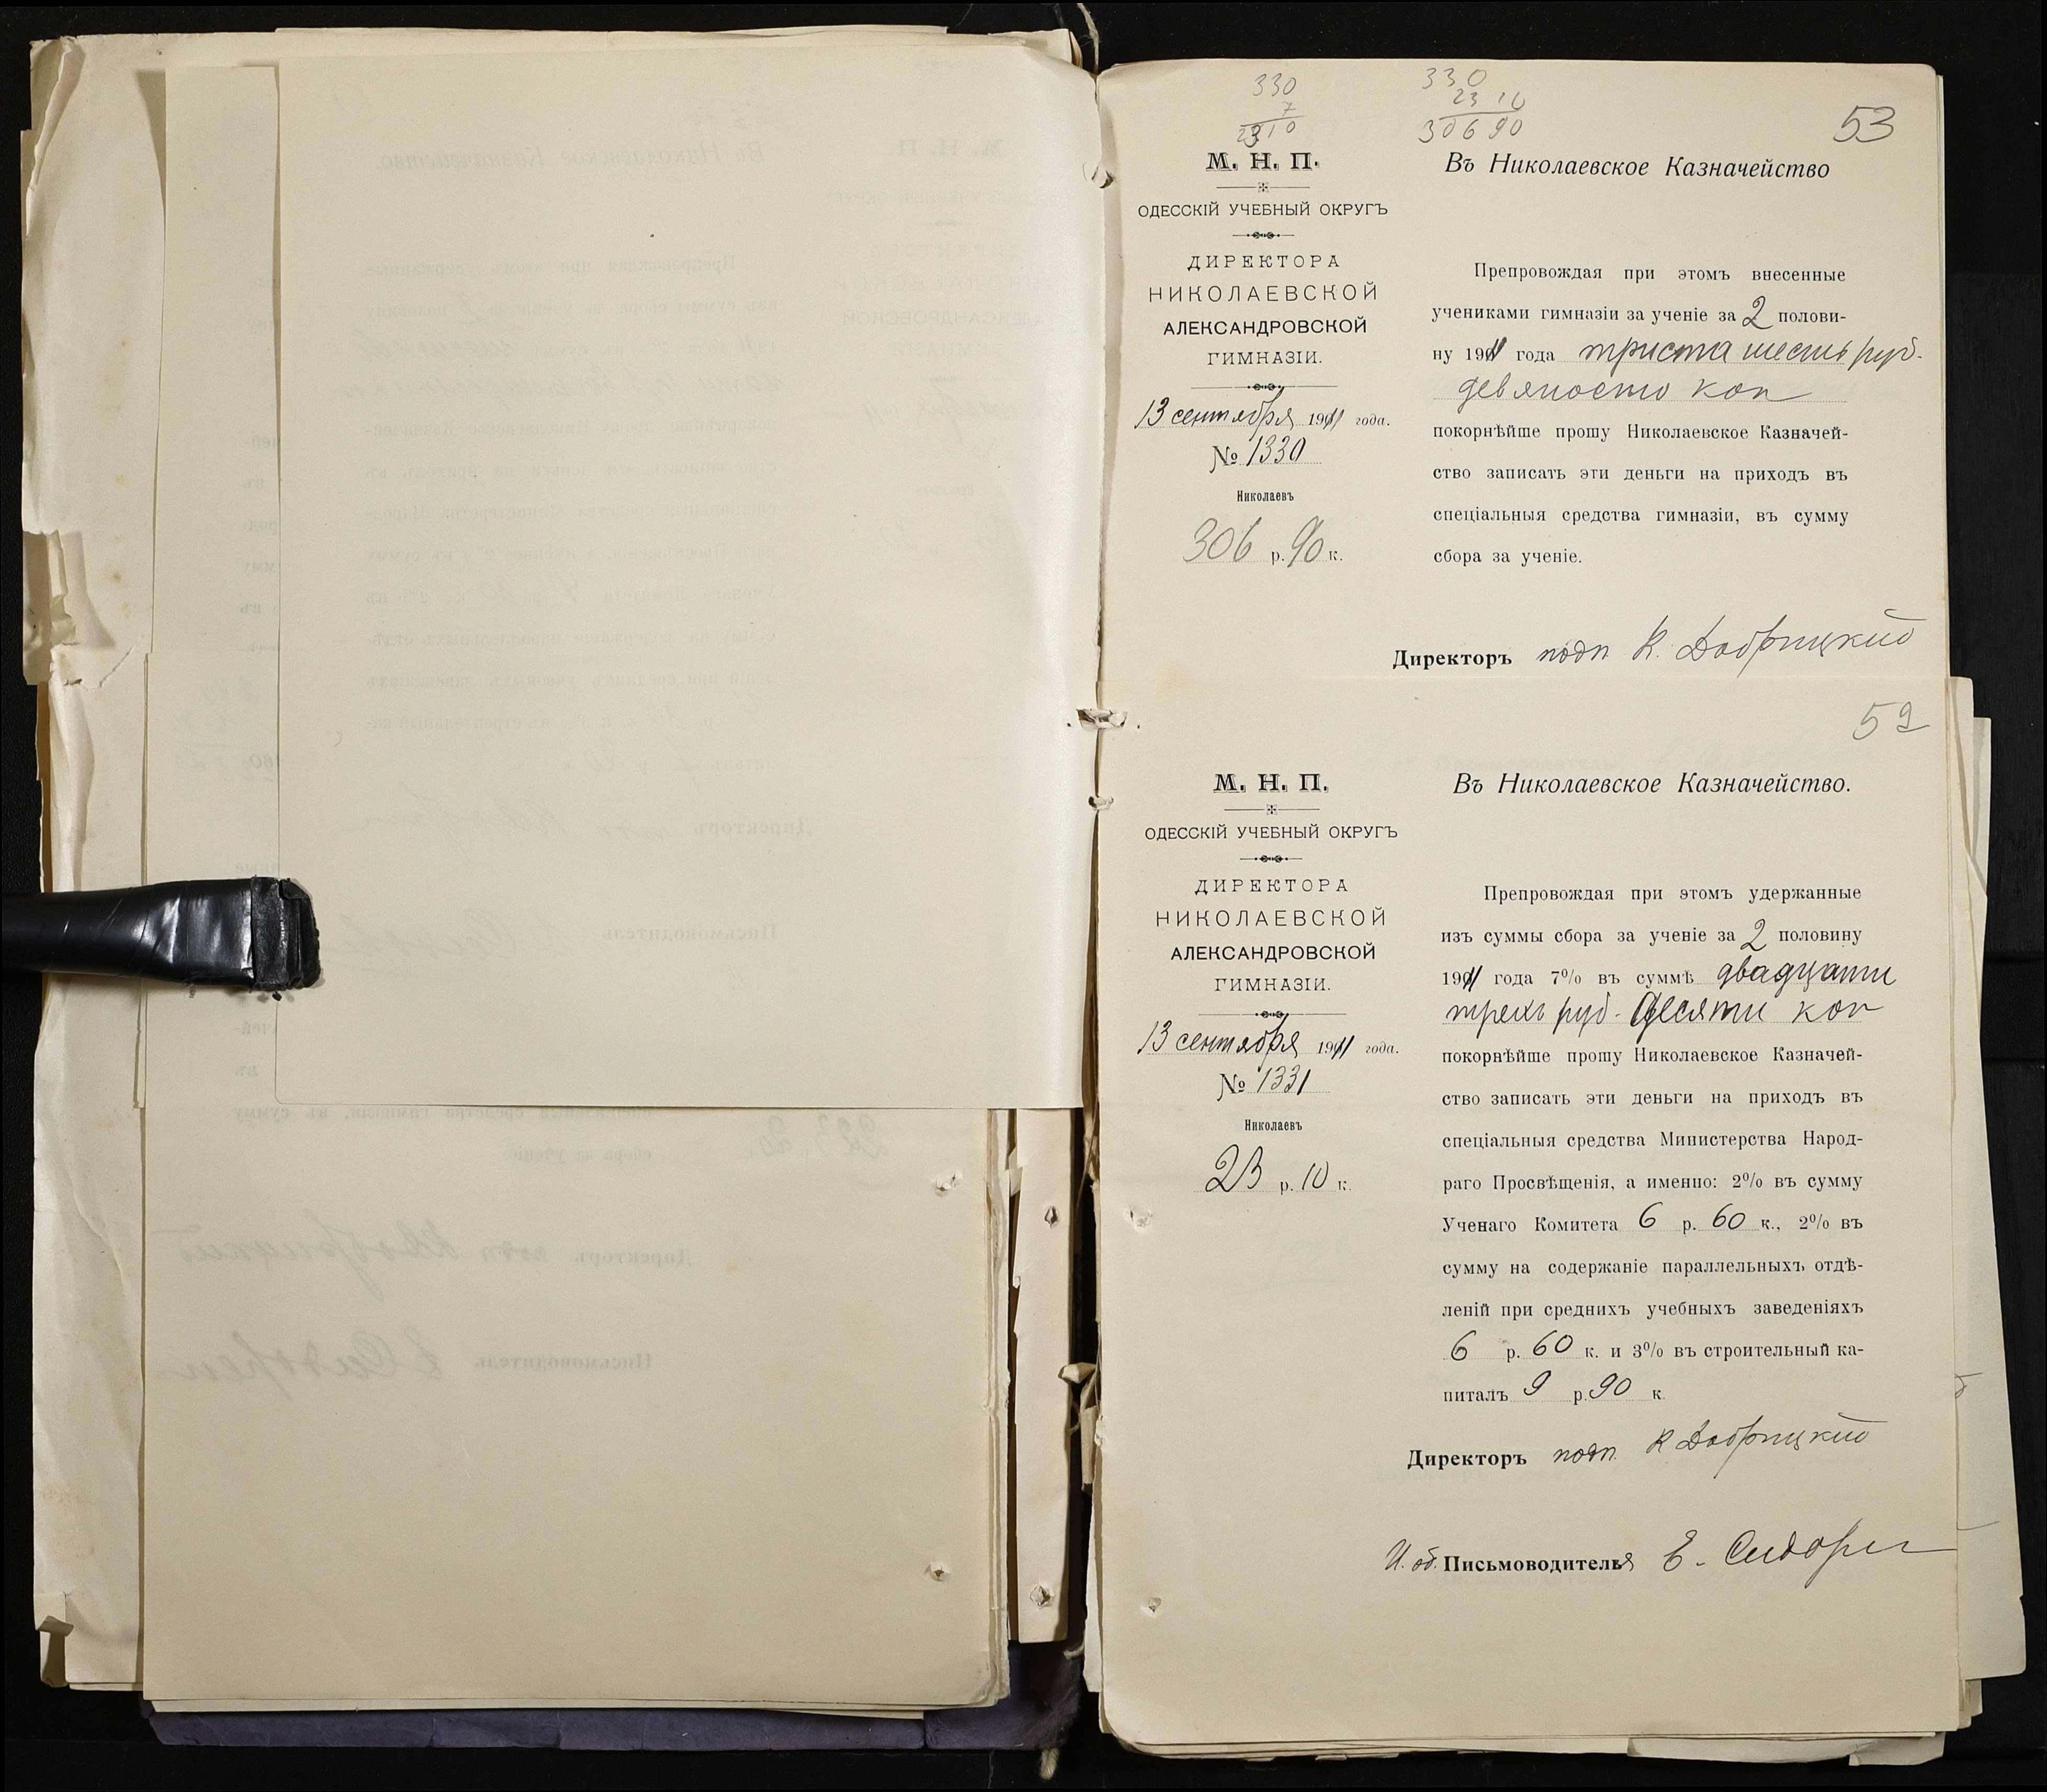 330
7
2310
330
23 10
306 90
53
М. Н. П.
ОДЕССКІЙ УЧЕБНЫЙ ОКРУГЪ
ДИРЕКТОРА
НИКОЛАЕВСКОЙ
АЛЕКСАНДРОВСКОЙ
ГИМНАЗІИ.
13 сентября 1911 года.
№ 1330
Николаевъ
306 р. 90 к.
Въ Николаевское Казначейство
Препровождая при этомъ внесенные
учениками гимназіи за ученіе за 2 полови-
ну 1911 года триста шесть руб.
девяносто коп
покорнѣйше прошу Николаевское Казначей-
ство записать эти деньги на приходъ въ
спеціальныя средства гимназіи, въ сумму
сбора за ученіе.
Директоръ подп К. Добрицкій
52
М. Н. П.
ОДЕССКІЙ УЧЕБНЫЙ ОКРУГЪ
ДИРЕКТОРА
НИКОЛАЕВСКОЙ
АЛЕКСАНДРОВСКОЙ
ГИМНАЗІИ.
13 сентября 1911 года.
№ 1331
Николаевъ
23 р. 10 к.
Въ Николаевское Казначейство.
Препровождая при этомъ удержанные
изъ суммы сбора за ученіе за 2 половину
1911 года 7% въ суммѣ двадцати
трехъ руб. десяти коп
покорнѣйше прошу Николаевское Казначей-
ство записать эти деньги на приходъ въ
спеціальныя средства Министерства Народ-
раго Просвѣщенія, а именно: 2% въ сумму
Ученаго Комитета 6 р. 60 к., 2% въ
сумму на содержаніе параллельныхъ отдѣ-
леній при среднихъ учебныхъ заведеніяхъ
6 р. 60 к. и 3% въ строительный ка-
питалъ 9 р. 90 к.
Директоръ подп. К Добрицкій
И. об. Письмоводителя Е.